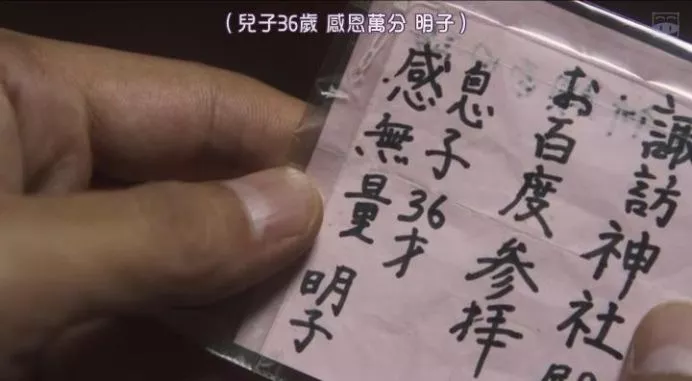 (兒子36歲 感恩萬分 明子)
諏訪神社殿
お百度参拝
息子36才
感無量 明子